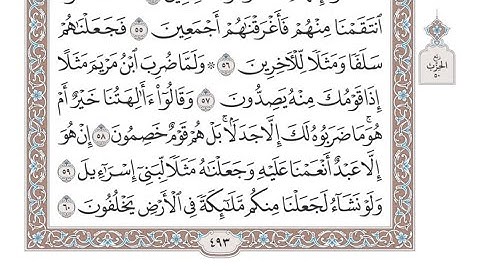 ٱنتَقَمْنَا مِنْهُمْ فَأَغْرَقْنَٰهُمْ أَجْمَعِينَ ٥٥ فَجَعَلْنَٰهُمْ
سَلَفًا وَمَثَلًا لِّلْءَاخِرِينَ ٥٦ ۞ وَلَمَّا ضُرِبَ ٱبْنُ مَرْيَمَ مَثَلًا
إِذَا قَوْمُكَ مِنْهُ يَصِدُّونَ ٥٧ وَقَالُوٓا۟ ءَأَٰلِهَتُنَا خَيْرٌ أَمْ
هُوَ ۚ مَا ضَرَبُوهُ لَكَ إِلَّا جَدَلًۢا ۚ بَلْ هُمْ قَوْمٌ خَصِمُونَ ٥٨ إِنْ هُوَ
إِلَّا عَبْدٌ أَنْعَمْنَا عَلَيْهِ وَجَعَلْنَٰهُ مَثَلًا لِّبَنِىٓ إِسْرَٰٓءِيلَ ٥٩
وَلَوْ نَشَآءُ لَجَعَلْنَا مِنكُم مَّلَٰٓئِكَةً فِى ٱلْأَرْضِ يَخْلُفُونَ ٦٠
٤٩٣
الحزب
٥٠